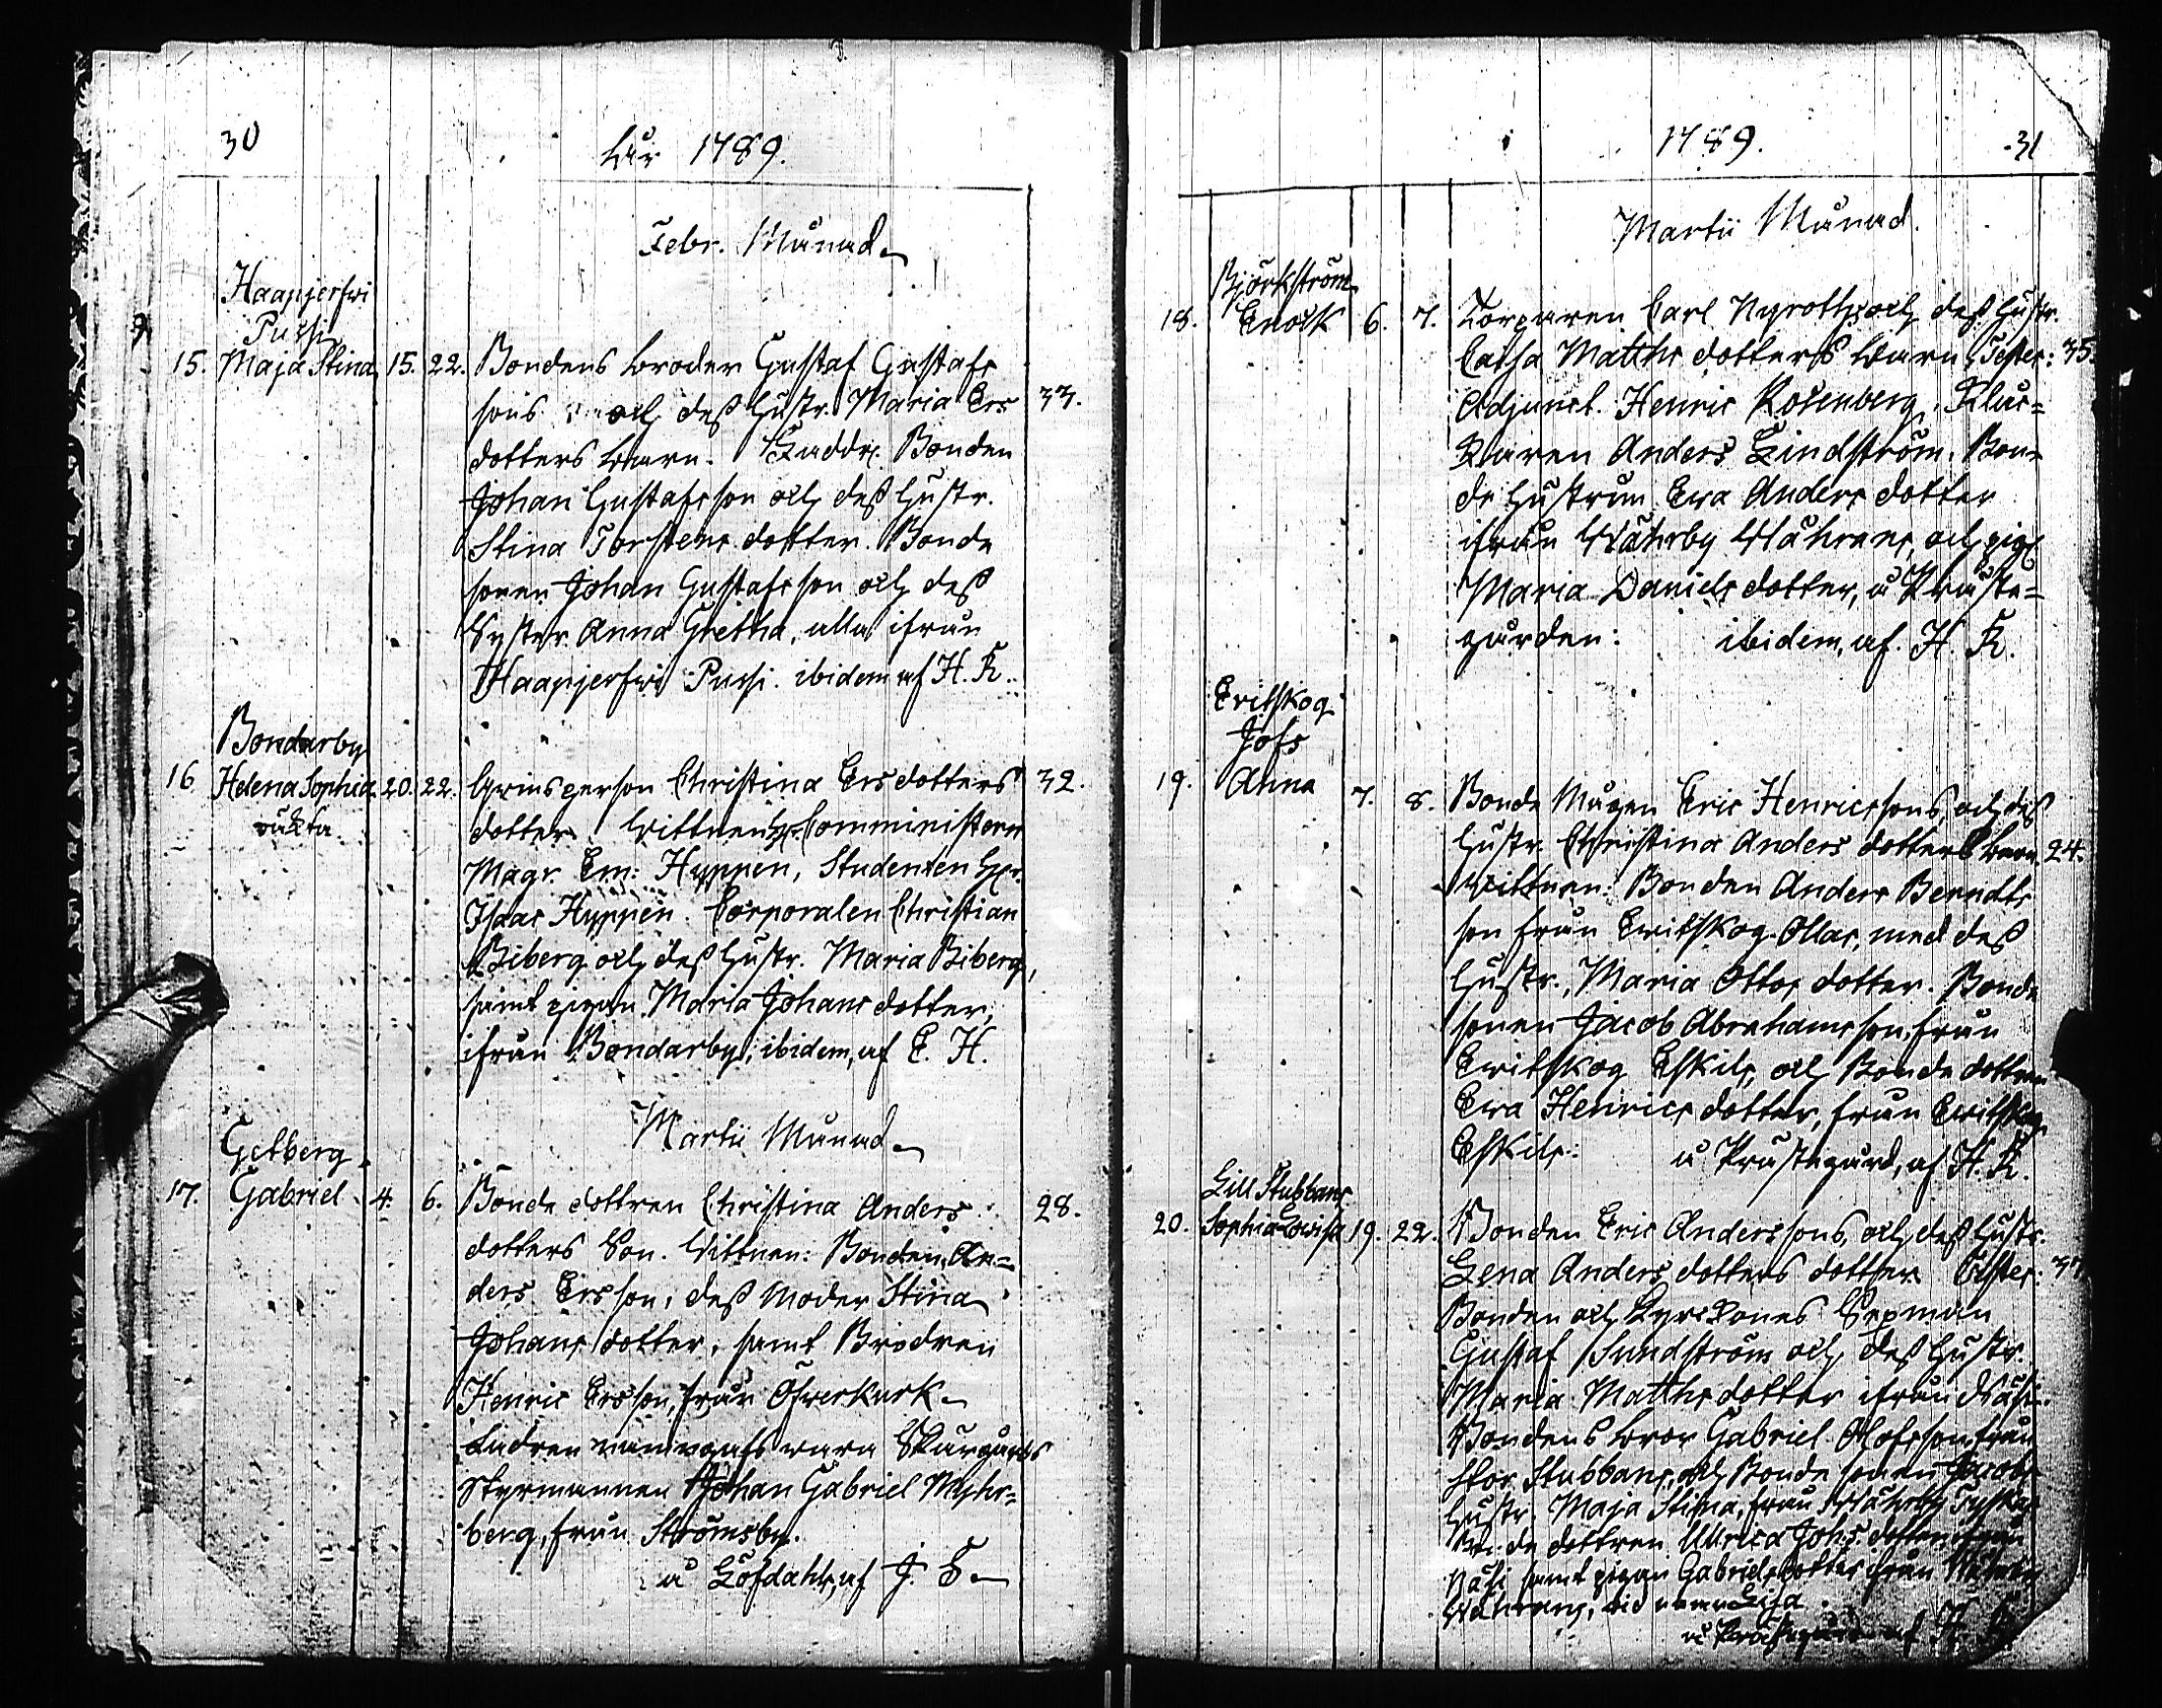 30
Åhr 1789.
Febr. Månad
Haapjerfwi
Pussi
15. Maja Stina 15. 22. Bondens broder Gustaf Gustafs
sons och dess hustr. Maria Ers 33.
dotters barn. Faddr. Bonden
Johan Gustafsson och dess hustr.
Stina Torstens dotter. Bonde
sonen Johan Gustafs son och dess
Syster Anna Gretha, alla ifrån
Haapjerfwi Pussi. ibidem af H. R.
Bondarby
16. Helena Sophia 20. 22. Qwinsperson Christina Ersdotters 32.
oäkta
dotter. Wittnen Hr Comministern
Magr. Em: Hyppen, Studenten Hr.
Isaac Hyppen. Corporalen Christian
Biberg och dess hustr. Maria Biberg,
samt pigan Maria Johans dotter,
ifrån Bondarby; ibidem, af E. H.
Martii Månad
Getberg
17. Gabriel 4. 6. Bonde dottren Christina Anders 28.
dotters Son. Wittnen: Bonden An=
ders Ersson, dess moder Stina
Johans dotter, samt Brodren
Henric Ersson, från Öfverkurk
Fadren wara Skärgårds
Styrmannen Johan Gabriel Myhr=
berg, från Strömsby.
å Löfdahl, af J. E.
1789. 31
Martii Månad.
Björkström
18. Enock 6. 7. Torparen Carl Nyroths och dess hustr.
Caisa Matths dotters barn Testes: 35
Adjunct. Henric Rosenberg, Kloc=
karen Anders Lindström. Bon=
de hustrun Ewa Anders dotter
ifrån Wåhrby Wåhrans, och pig.
Maria Daniels dotter, å Präste=
gården: ibidem, af H. R.
Evitskog
Jofs
19. Anna 7. 8. Bonde Mågen Eric Henricssons, och dess
hustr. Christina Anders dotters barn 24.
Wittnen: Bonden Anders Berndts
son från Ewitskog Ollas, med dess
hustr., Maria Ottos dotter. Bonde
sonen Jacob Abrahams son från
Ewitskog Eskils, och Bonde dottren
Ewa Henrics dotter, från Ewitskog
Eskils: å Prästegård, af H. R.
Lill Stubbans
20. Sophia Lovisa 19. 22. Bonden Eric Anderssons, och dess hustr.
Lena Anders dotters dotter Testes: 37
Bonden och Kyrckones Sexman
Gustaf Sundström och dess hustr.
Maria Matths dotter ifrån Näse.
Bondens bror Gabriel Olofsson från
Stor Stubbans, och Bonde sonen Jacobs
hustr. Maja Stina, från Wåhrby Tyskas
Bonde dottren Ullrica Johs. dotter från
Näse samt pigan Gabriels dotter från
Wåhrans, wid namn Lisa.
å Prästegården af H. R.